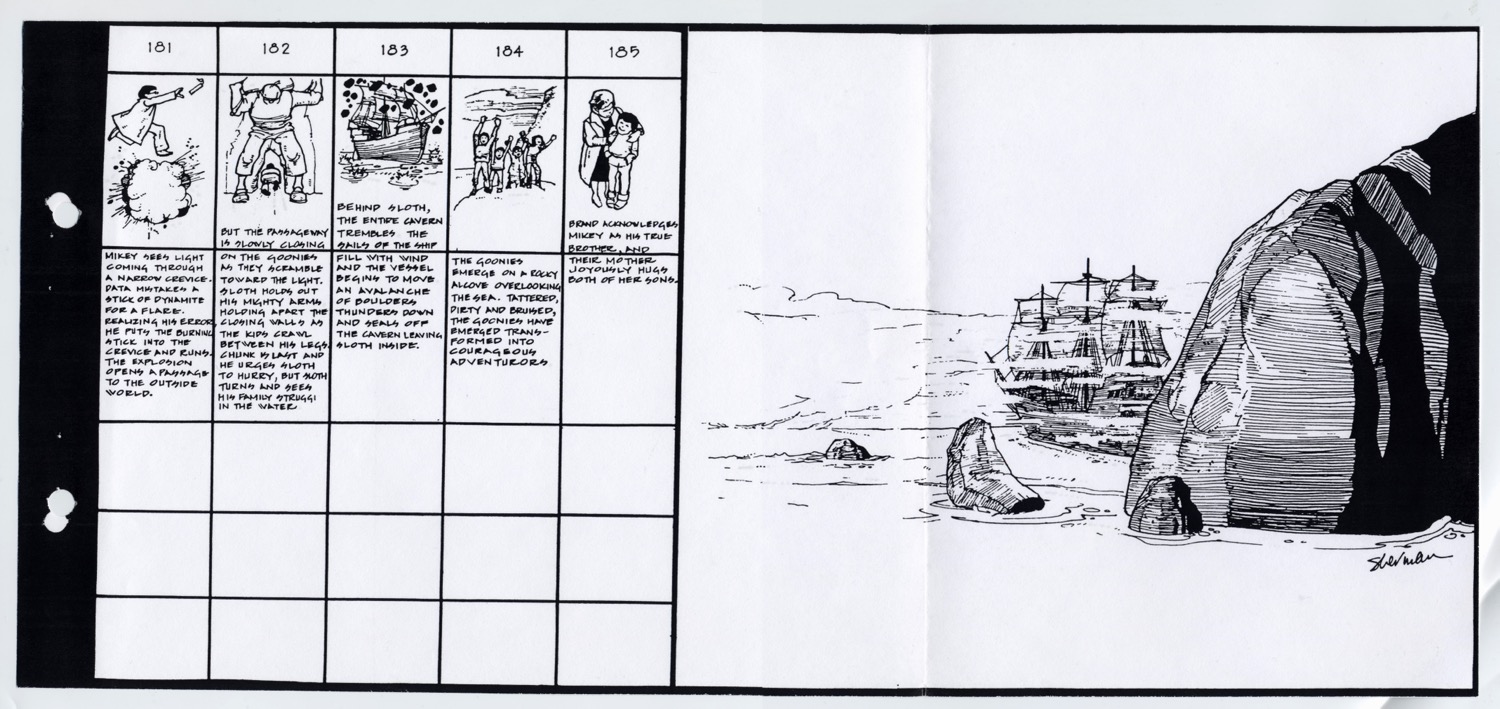 181
MIKEY SEES LIGHT
COMING THROUGH
A NARROW CREVICE.
DATA MISTAKES A
STICK OF DYNAMITE
FOR A FLARE.
REALIZING HIS ERROR,
HE PUTS THE BURNING
STICK INTO THE
CREVICE AND RUNS.
THE EXPLOSION
OPENS A PASSAGE
TO THE OUTSIDE
WORLD.
182
BUT THE PASSAGEWAY
IS SLOWLY CLOSING
ON THE GOONIES
AS THEY SCRAMBLE
TOWARD THE LIGHT.
SLOTH HOLDS OUT
HIS MIGHTY ARMS
HOLDING APART THE
CLOSING WALLS AS
THE KIDS CRAWL
BETWEEN HIS LEGS.
CHUNK IS LAST AND
HE URGES SLOTH
TO HURRY, BUT SLOTH
TURNS AND SEES
HIS FAMILY STRUGGI
IN THE WATER
183
BEHIND SLOTH,
THE ENTIRE CAVERN
TREMBLES THE
SAILS OF THE SHIP
FILL WITH WIND
AND THE VESSEL
BEGINS TO MOVE
AN AVALANCHE
OF BOULDERS
THUNDERS DOWN
AND SEALS OFF
THE CAVERN LEAVING
SLOTH INSIDE.
184
THE GOONIES
EMERGE ON A ROCKY
ALCOVE OVERLOOKING
THE SEA. TATTERED,
DIRTY AND BRUISED,
THE GOONIES HAVE
EMERGED TRANS-
FORMED INTO
COURAGEOUS
ADVENTURORS
185
BRAND ACKNOWLEDGES
MIKEY AS HIS TRUE
BROTHER, AND
THEIR MOTHER
JOYOUSLY HUGS
BOTH OF HER SONS.
Sherman